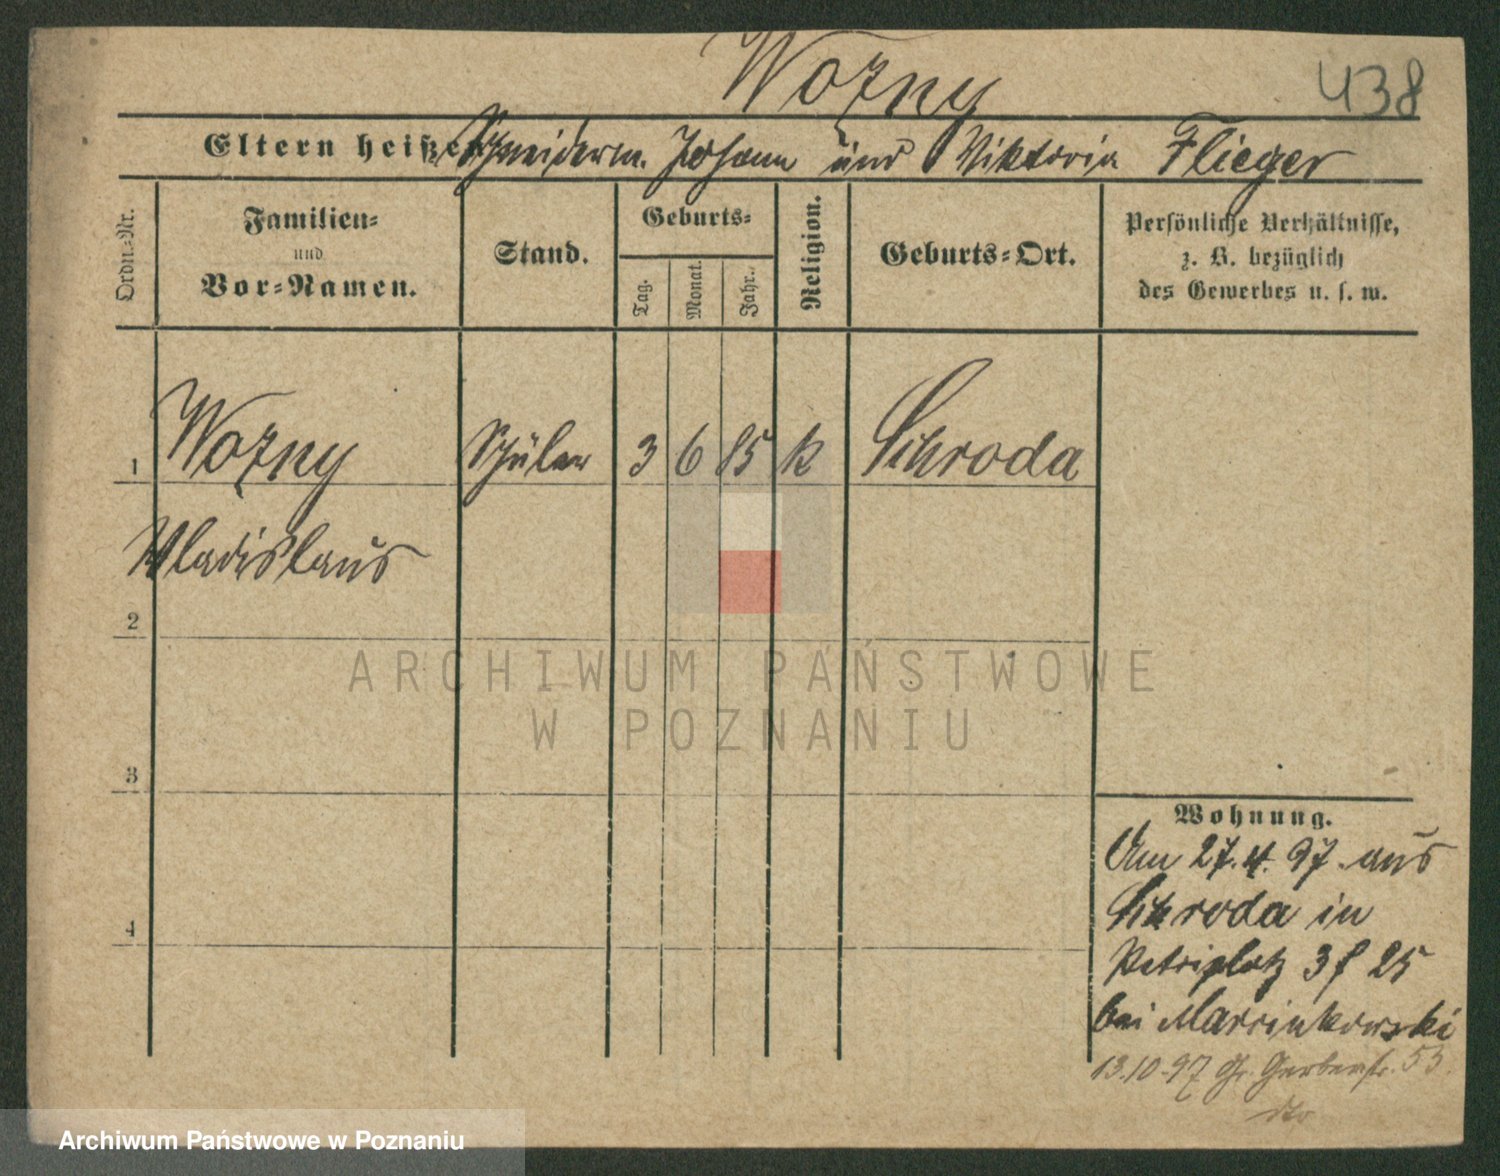 Wozny
438
Eltern heißen Schneiderm. Johann und Viktoria Flieger
Ordn.=Nr.
Familien=
und
Vor=Namen.
Stand.
Geburts=
Tag.
Monat.
Jahr.
Religion.
Geburts=Ort.
Persönliche Verhältnisse,
z. B. bezüglich
des Gewerbes u. s. w.
1 Wozny Schüler 3 6 85 k Schroda
Wladislaus
2
ARCHIWUM PAŃSTWOWE
W POZNANIU
3
4
Wohnung.
Am 27.4.97. aus
Schroda in
Petriplatz 3 f 25
bei Marcinkowski
13.10.97 Gr. Gerberstr. 53
dto
Archiwum Państwowe w Poznaniu